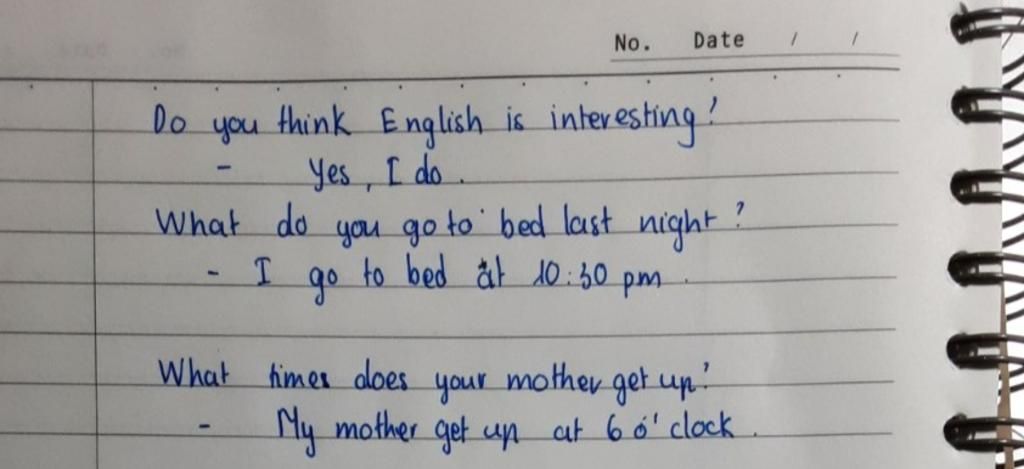 No. Date / /
Do you think English is interesting?
- Yes, I do.
What do you go to bed last night?
- I go to bed at 10:30 pm.
What times does your mother get up?
- My mother get up at 6 o'clock.